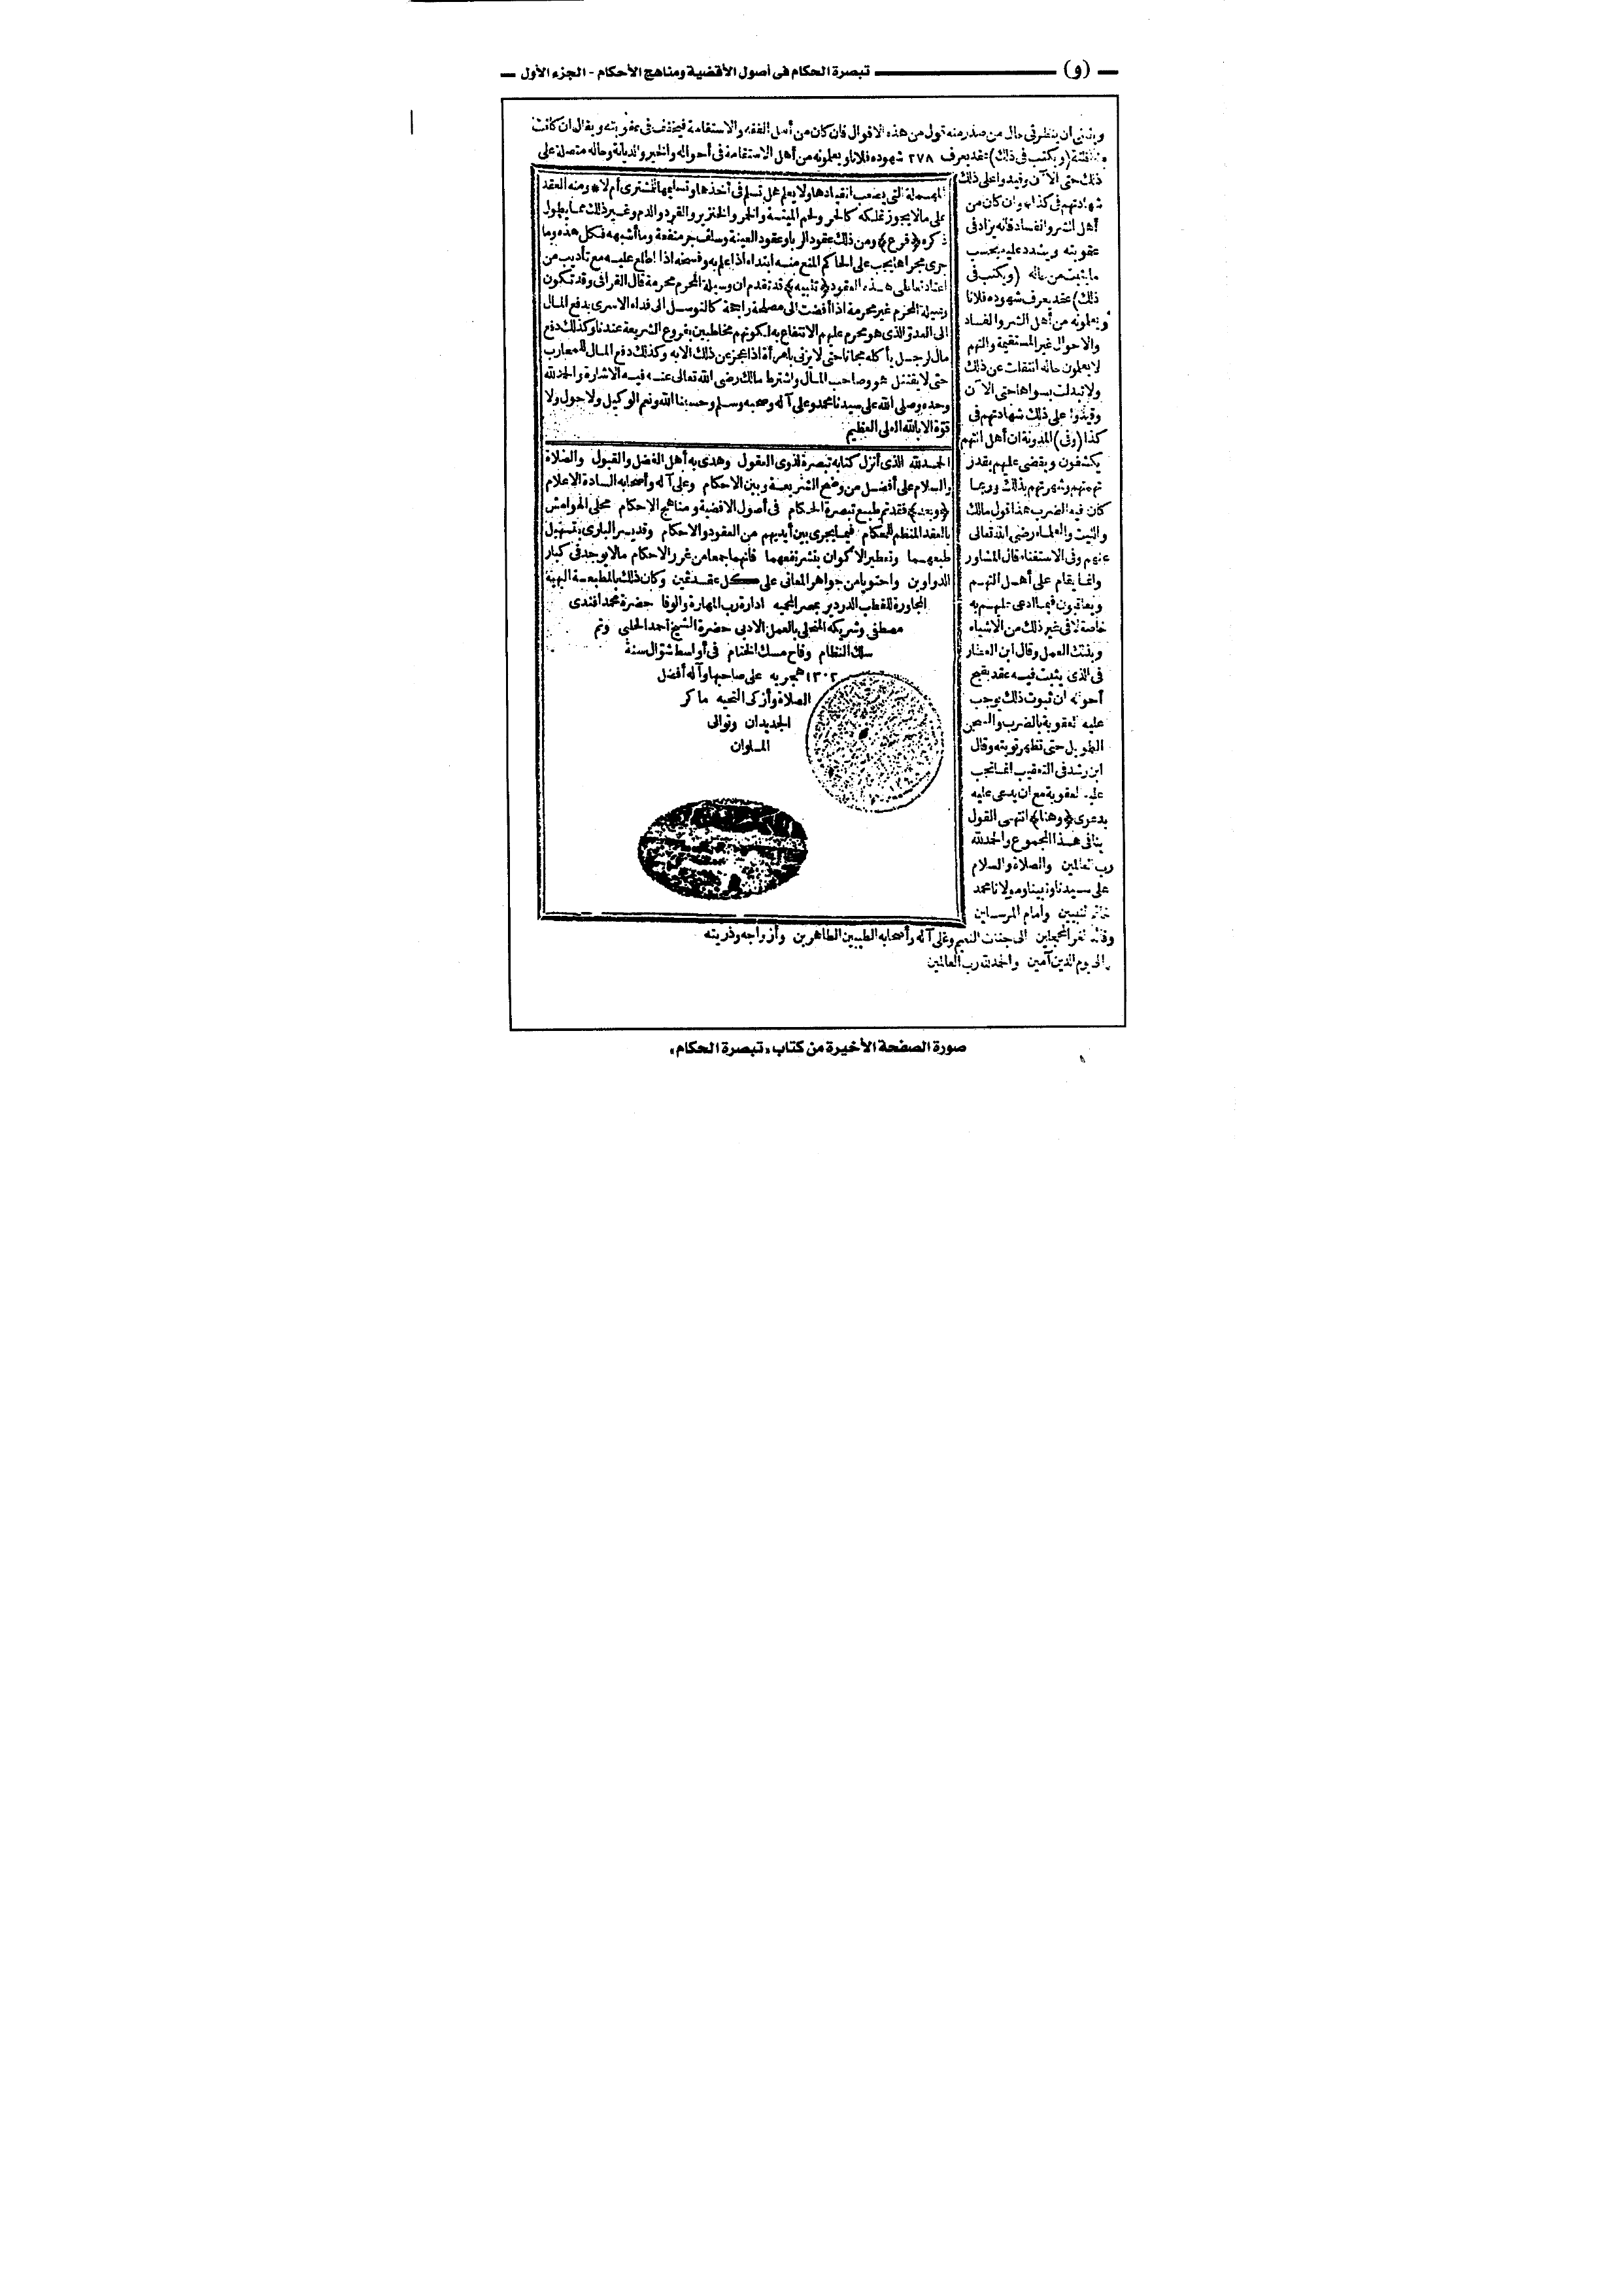 (و) تبصرة الحكام فى أصول الأقضية ومناهج الأحكام - الجزء الأول
وينبغى أن ينظر فى حال من صدر منه قول من هذه الاقوال فان كان من أهل الفقه والاستقامة فيخفف فى عقوبته ويقال ان كانت
(ويكتب فى ذلك) عقد يعرف ٢٧٨ شهوده فلانا ويعلمونه من أهل الاستقامة فى أحواله والخير والديانة وحاله متصلة على
ذلك حتى الآن وقيدوا على ذلك
شهادتهم فى كذا وان كان من
أهل الشر والفساد فانه يزاد فى
عقوبته ويشدد عليه بحسب
ما يثبت من حاله (ويكتب فى
ذلك) عقد يعرف شهوده فلانا
ويعلمونه من أهل الشر والفساد
والاحوال غير المستقيمة والتهم
لا يعلمون حاله انتقلت عن ذلك
ولا تبدلت بسواها حتى الآن
وقيدوا على ذلك شهادتهم فى
كذا (وفى) المدونة ان أهل التهم
يكشفون ويقضى عليهم بقدر
تهمتهم وشهرتهم بذلك وربما
كان فيه الضرب هذا قول مالك
والليث والعلماء رضى الله تعالى
عنهم وفى الاستغناء قال المشاور
وانما يقام على أهل التهم
ويعاقبون فيما ادعى عليهم به
خاصة لا فى غير ذلك من الاشياء
وبذلك العمل وقال ابن العطار
فى الذى يثبت فيه عقد بقبيح
أحواله ان ثبوت ذلك يوجب
عليه العقوبة بالضرب والسجن
الطويل حتى تظهر توبته وقال
ابن رشد فى التعقيب انما تجب
عليه العقوبة مع ان يدعى عليه
بدعوى ﴿وهنا﴾ انتهى القول
بنا فى هذا المجموع والحمد لله
رب العالمين والصلاة والسلام
على سيدنا ونبينا ومولانا محمد
خاتم النبيين وامام المرسلين
وقائد الغر المحجلين الى جنات النعيم وعلى آله وأصحابه الطيبين الطاهرين وأزواجه وذريته
الى يوم الدين آمين والحمد لله رب العالمين
المهملة التى يصعب انقيادها ولا يعلم هل تسلم فى أخذها وتسليمها للمشترى أم لا * ومنه العقد
على ما لا يجوز تملكه كالحر ولحم الميتة والخمر والخنزير والقرد والدم وغير ذلك مما يطول
ذكره ﴿فرع﴾ ومن ذلك عقود الربا وعقود العينة وسلف جر منفعة وما أشبهه فكل هذه وما
جرى مجراها يجب على الحاكم المنع منه ابتداء اذا علم به وفسخه اذا اطلع عليه مع تأديب من
اعتاد تعاطى هذه العقود ﴿تنبيه﴾ قد تقدم ان وسيلة المحرم محرمة قال القرافى وقد تكون
وسيلة المحرم غير محرمة اذا أفضت الى مصلحة راجحة كالتوسل الى فداء الاسرى بدفع المال
الى العدو الذى هو محرم عليهم الانتفاع به لكونهم مخاطبين بفروع الشريعة عندنا وكذلك دفع
مال لرجل يأكله مجانا حتى لا يزنى بامرأة اذا عجز عن ذلك الا به وكذلك دفع المال للمحارب
حتى لا يقتتل هو وصاحب المال واشترط مالك رضى الله تعالى عنه فيه الاشارة والحمد لله
وحده وصلى الله على سيدنا محمد وعلى آله وصحبه وسلم وحسبنا الله ونعم الوكيل ولا حول ولا
قوة الا بالله العلى العظيم
الحمد لله الذى أنزل كتابه تبصرة لذوى العقول وهدى به أهل الفضل والقبول والصلاة
والسلام على أفضل من وضح الشريعة وبين الاحكام وعلى آله وأصحابه السادة الاعلام
﴿وبعد﴾ فقد تم طبع تبصرة الحكام فى أصول الاقضية ومناهج الاحكام محلى الهوامش
بالعقد المنظم للحكام فيما يجرى بين أيديهم من العقود والاحكام وقد يسر البارى بتسهيل
طبعهما وتعطير الاكوان بنشر نفعهما فانهما جمعا من غرر الاحكام ما لا يوجد فى كبار
الدواوين واحتويا من جواهر المعانى على كل عقد ثمين وكان ذلك بالمطبعة البهية
المجاورة للقطب الدردير بمصر المحميه ادارة رب المهارة والوفا حضرة محمد افندى
مصطفى وشريكه المتحلى بالعمل الادبى حضرة الشيخ أحمد الحلبى وتم
سلك النظام وفاح مسك الختام فى أواسط شوال سنة
١٣٠٢ هجريه على صاحبها وآله أفضل
الصلاة وأزكى التحيه ما كر
الجديدان وتوالى
الملوان
صورة الصفحة الأخيرة من كتاب «تبصرة الحكام»